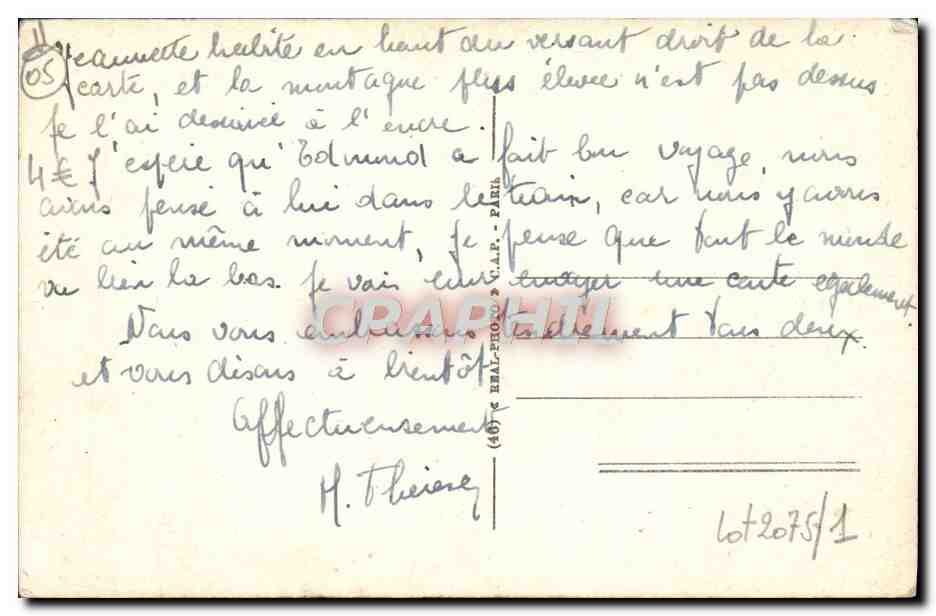 05
Jeannette habite en haut du versant droit de la
carte, et la montagne plus élevée n'est pas dessus
je l'ai dessinée à l'encre.
4€ J'espère qu'Edmond a fait bon voyage, nous
avons pensé à lui dans le train, car nous y avons
été au même moment, je pense que tout le monde
va bien là bas. Je vais leur envoyer une carte également.
Nous vous embrassons tendrement tous deux.
et vous disons à bientôt
Affectueusement
M. Thérèse
(46) REAL-PHOTO C.A.P. - PARIS
CRAPHIL
Lot 2075/1